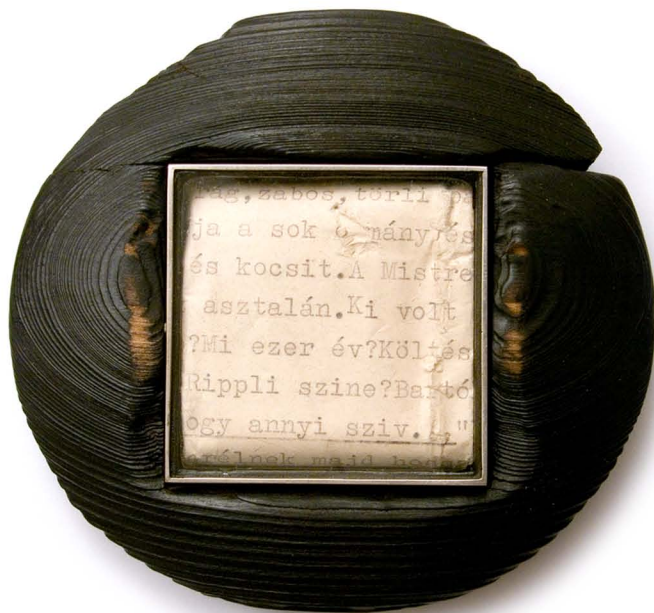 rág,zabos,törli
ja a sok mány,és
és kocsit.A Mistre
asztalán.Ki volt
?Mi ezer év?Költés
Rippli szine?Bartó
ogy annyi sziv..."
majd